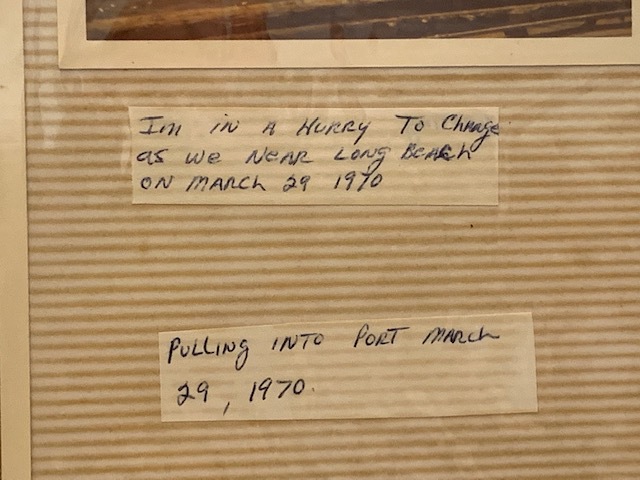 Im in A HURRY To Change
as we NEAR LONG BEACH
ON MARCH 29 1970
PULLing INTO PORT MARCH
29, 1970.